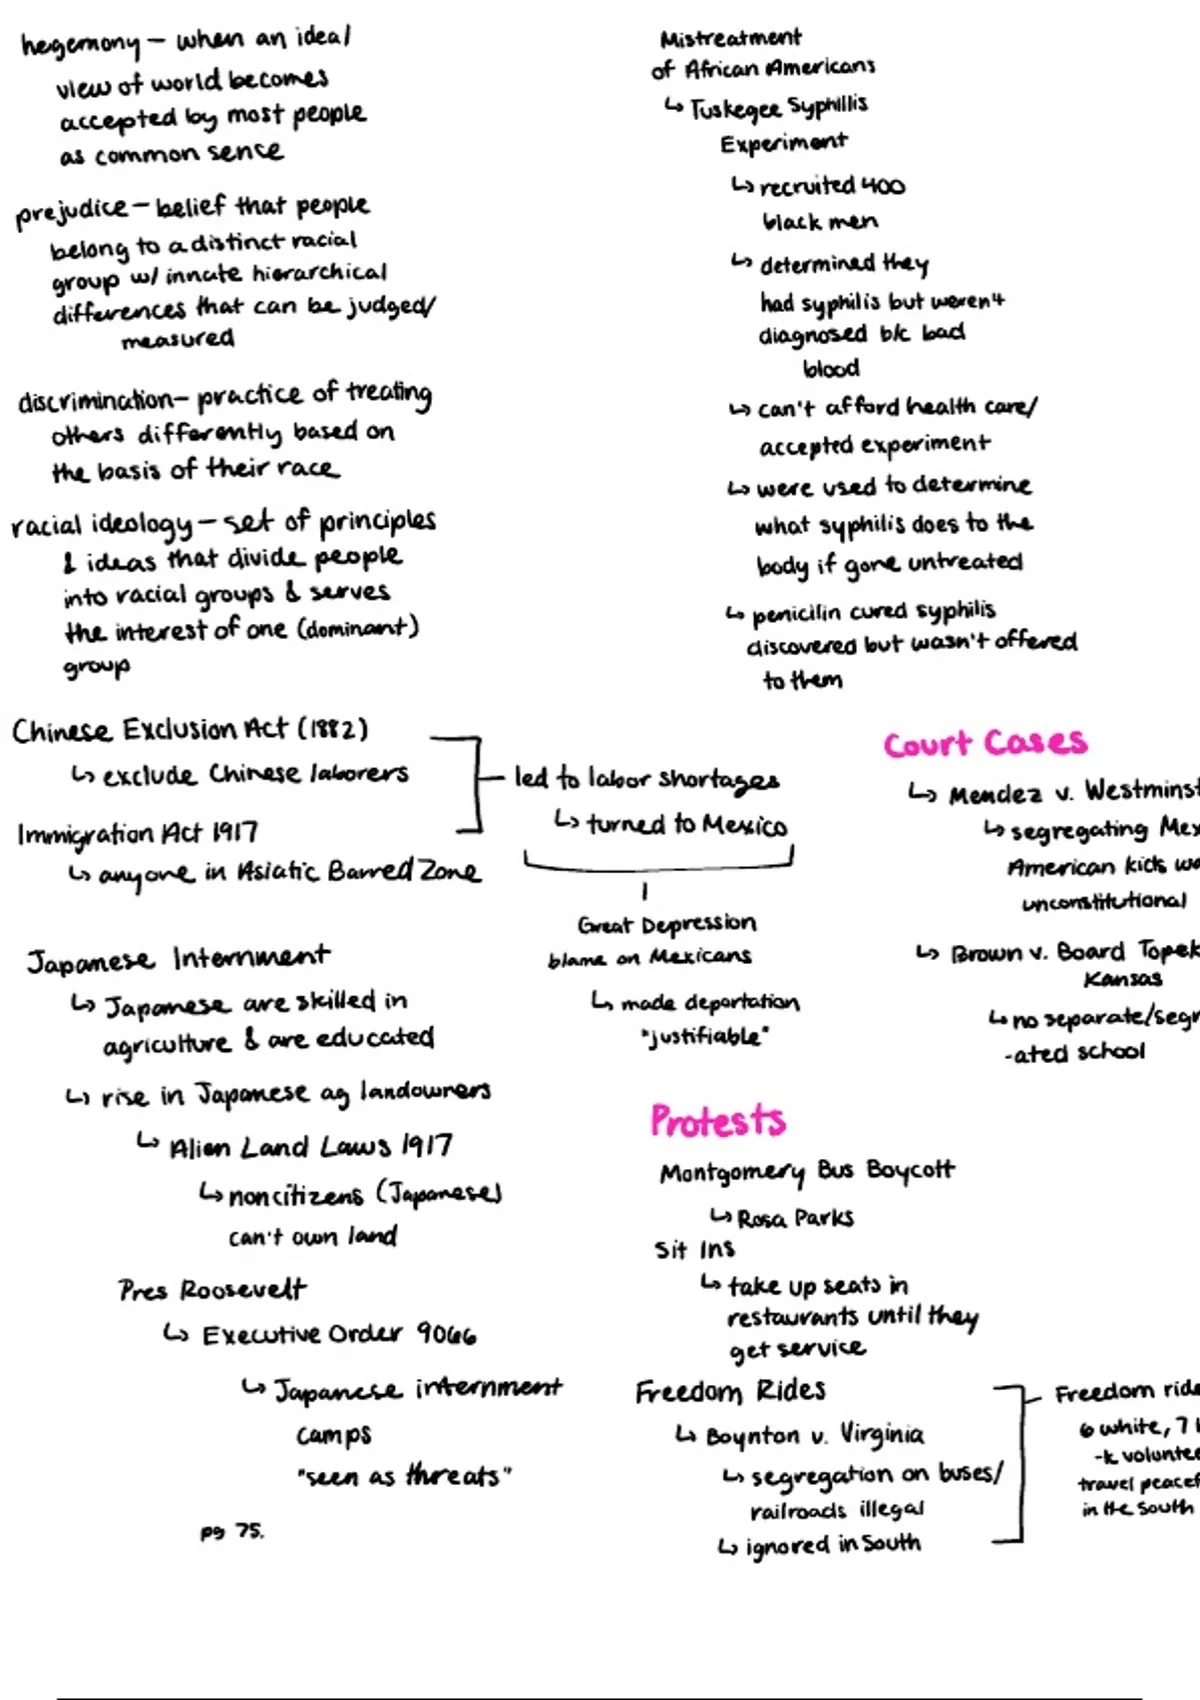 hegemony – when an ideal
view of world becomes
accepted by most people
as common sence
prejudice – belief that people
belong to a distinct racial
group w/ innate hierarchical
differences that can be judged/
measured
discrimination – practice of treating
others differently based on
the basis of their race
racial ideology – set of principles
& ideas that divide people
into racial groups & serves
the interest of one (dominant)
group
Mistreatment
of African Americans
↳ Tuskegee Syphillis
Experiment
↳ recruited 400
black men
↳ determined they
had syphilis but weren't
diagnosed b/c bad
blood
↳ can't afford health care/
accepted experiment
↳ were used to determine
what syphilis does to the
body if gone untreated
↳ penicilin cured syphilis
discovered but wasn't offered
to them
Chinese Exclusion Act (1882)
↳ exclude Chinese laborers
Immigration Act 1917
↳ anyone in Asiatic Barred Zone
led to labor shortages
↳ turned to Mexico
Great Depression
blame on Mexicans
↳ made deportation
"justifiable"
Court Cases
↳ Mendez v. Westminst
↳ segregating Mex
American kids wa
unconstitutional
↳ Brown v. Board Topek
Kansas
↳ no separate/segr
-ated school
Japanese Internment
↳ Japanese are skilled in
agriculture & are educated
↳ rise in Japanese ag landowners
↳ Alien Land Laws 1917
↳ noncitizens (Japanese)
can't own land
Pres Roosevelt
↳ Executive Order 9066
↳ Japanese internment
camps
"seen as threats"
pg 75.
Protests
Montgomery Bus Boycott
↳ Rosa Parks
Sit Ins
↳ take up seats in
restaurants until they
get service
Freedom Rides
↳ Boynton v. Virginia
↳ segregation on buses/
railroads illegal
↳ ignored in South
Freedom ride
6 white, 7 b
-k voluntee
travel peacef
in the South